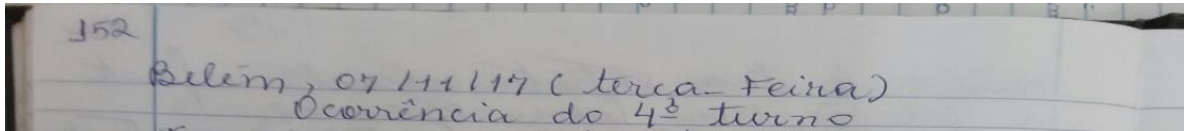 152
Belém, 07/11/17 (terca-Feira)
Ocorrência do 4º turno